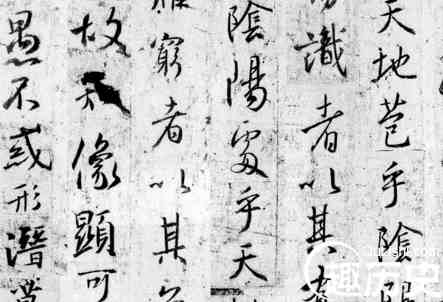 天地苞乎陰陽
識者以其有
陰陽處乎天
難窮者以其無
故像顯可
愚不惑形潛莫
趣历史